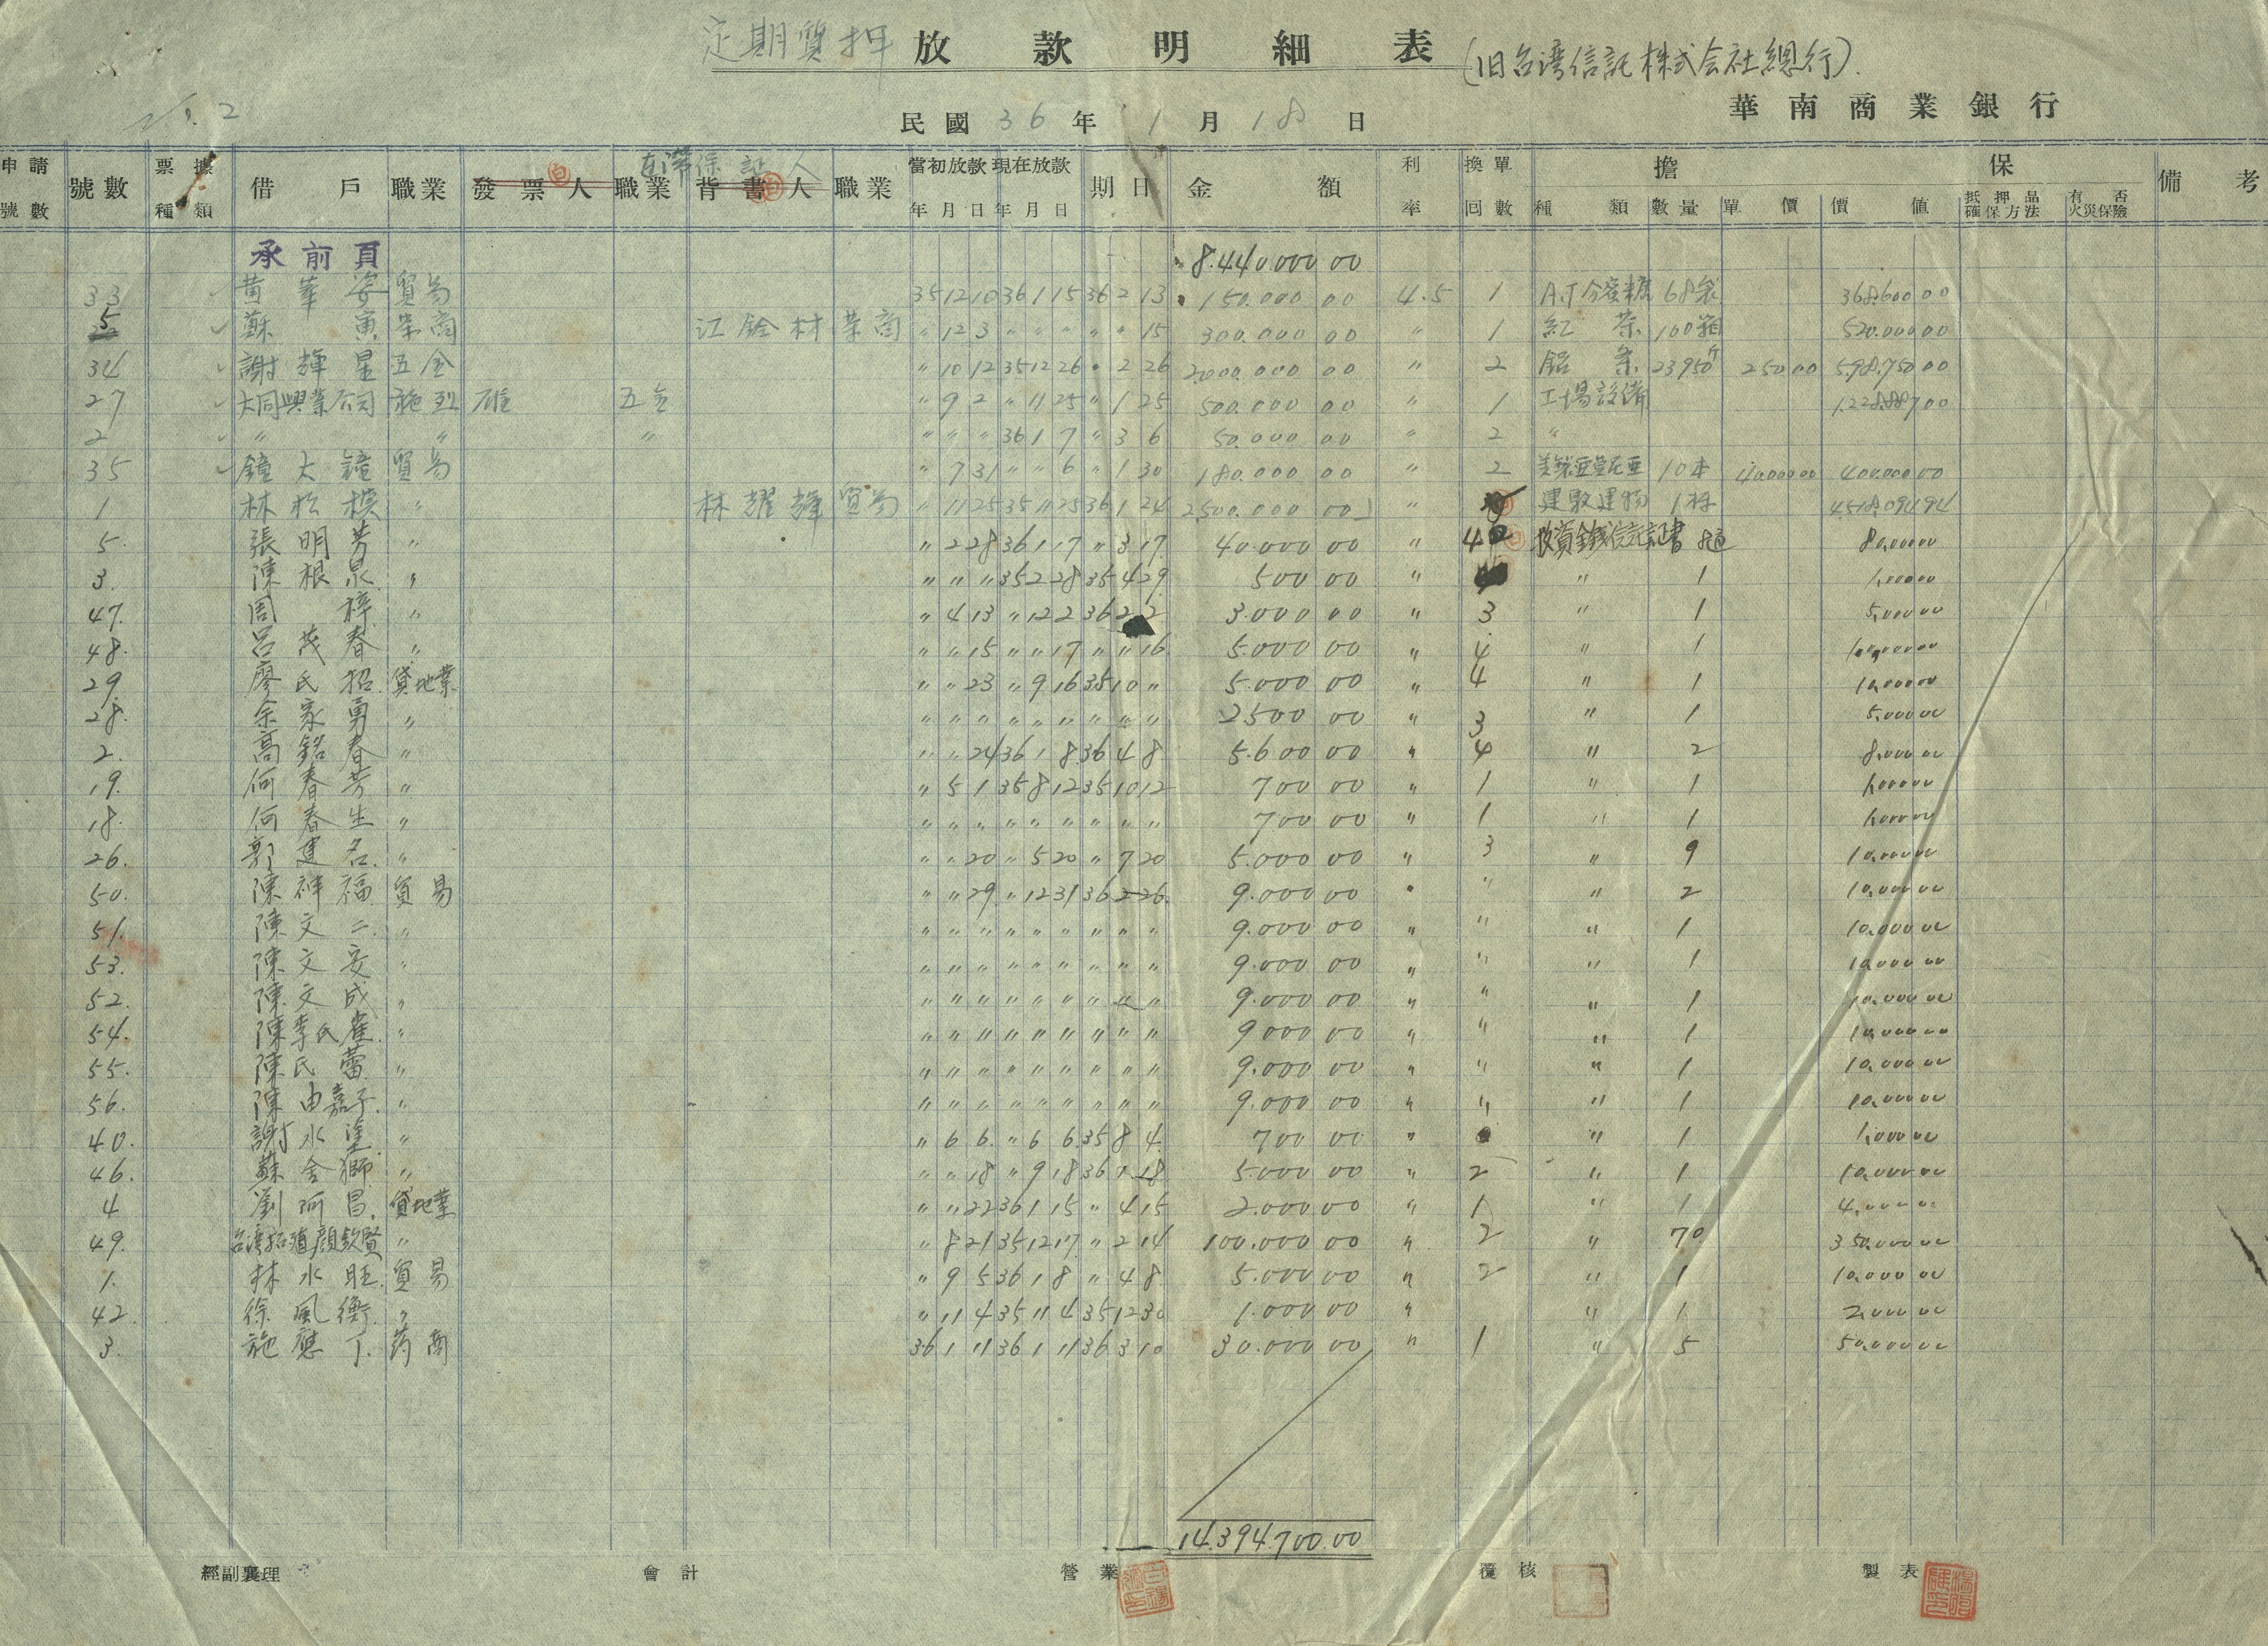 定期質押 放款明細表 (旧台湾信託株式会社總行).
華南商業銀行
民國 36 年 1 月 18 日
申請號數 號數 票據種類 借戶 職業 發票人 職業 連帶保証人 背書人 職業 當初放款 年月日 現在放款 年月日 期日 金額 利率 換單回數 擔保 種類 數量 單價 價值 抵押品確保方法 有否火災保險 備考
承前頁 8.440.000 00
33 黃 貿易 35 12 10 36 1 15 36 2 13 150.000 00 4.5 1 A.J分蜜糖 68袋 368.600 00
5 蘇寅 茶商 江 材 茶商 〃 12 3 〃 〃 〃 〃 〃 15 300.000 00 〃 1 紅茶 100箱 520.000 00
34 謝輝星 五金 〃 10 12 35 12 26 〃 2 26 2.000.000 00 〃 2 鋁条 23950斤 250 00 5.987.500 00
27 大同興業公司 施烈雄 五金 〃 9 2 〃 11 25 〃 1 25 500.000 00 〃 1 工場設備 1.228.887 00
2 〃 〃 〃 〃 〃 〃 36 1 7 〃 3 6 50.000 00 〃 2 〃
35 鐘大鐘 貿易 〃 7 31 〃 〃 6 〃 1 30 180.000 00 〃 2 10本 40.000 00 400.000 00
1 林松模 〃 林耀輝 貿易 〃 11 25 35 11 25 36 1 24 2.500.000 00 〃 建物 1棟 4.518.094 94
5. 張明芳 〃 〃 2 28 36 1 17 〃 3 17 40.000 00 〃 4 投資金錢信託証書 8通 80.000 00
3. 陳根泉 〃 〃 〃 〃 35 2 28 35 4 29 500 00 〃 〃 1 1.000 00
47. 周梓 〃 〃 4 13 〃 12 2 36 2 2 3.000 00 〃 3 〃 1 5.000 00
48. 呂茂春 〃 〃 〃 15 〃 〃 17 〃 〃 16 5.000 00 〃 4 〃 1 10.000 00
29. 廖氏招 貸地業 〃 〃 23 〃 9 16 35 10 〃 5.000 00 〃 4 〃 1 10.000 00
28. 余家勇 〃 〃 〃 〃 〃 〃 〃 〃 〃 〃 2500 00 〃 3 〃 1 5.000 00
2. 高銘春 〃 〃 〃 24 36 1 8 36 4 8 5.600 00 〃 4 〃 2 8.000 00
19. 何春芳 〃 〃 5 1 35 8 12 35 10 12 700 00 〃 1 〃 1 1.000 00
18. 何春生 〃 〃 〃 〃 〃 〃 〃 〃 〃 〃 700 00 〃 1 〃 1 1.000 00
26. 郭建名. 〃 〃 〃 20 〃 5 20 〃 7 20 5.000 00 〃 3 〃 9 10.000 00
50. 陳祥福 貿易 〃 〃 29 〃 12 31 36 2 26 9.000 00 〃 〃 〃 2 10.000 00
51. 陳文二. 〃 〃 〃 〃 〃 〃 〃 〃 〃 〃 9.000 00 〃 〃 〃 1 10.000 00
53. 陳文安 〃 〃 〃 〃 〃 〃 〃 〃 〃 〃 9.000 00 〃 〃 〃 1 10.000 00
52. 陳文成 〃 〃 〃 〃 〃 〃 〃 〃 〃 〃 9.000 00 〃 〃 〃 1 10.000 00
54. 陳李氏雀. 〃 〃 〃 〃 〃 〃 〃 〃 〃 〃 9000 00 〃 〃 〃 1 10.000 00
55. 陳氏蕾. 〃 〃 〃 〃 〃 〃 〃 〃 〃 〃 9.000 00 〃 〃 〃 1 10.000 00
56. 陳由嘉子. 〃 〃 〃 〃 〃 〃 〃 〃 〃 〃 9.000 00 〃 〃 〃 1 10.000 00
40. 謝水塗 〃 〃 6 6. 〃 6 6 35 8 4. 700 00 〃 〃 1 1.000 00
46. 蘇金獅. 〃 〃 〃 18 〃 9 18 36 1 18 5.000 00 〃 2 〃 1 10.000 00
4 劉阿昌. 貸地業 〃 〃 22 36 1 15 〃 4 15 2.000 00 〃 1 〃 1 4.000 00
49. 台湾拓殖顏欽賢 〃 〃 8 21 35 12 17 〃 2 14 100.000 00 〃 2 〃 70 350.000 00
1. 林水旺. 貿易 〃 9 5 36 1 8 〃 4 8 5.000 00 〃 2 〃 1 10.000 00
42. 徐風衡. 〃 〃 11 4 35 11 4 35 12 30 1.000 00 〃 〃 1 2.000 00
3. 施應丁. 药商 36 1 11 36 1 11 36 3 10 30.000 00 〃 1 〃 5 50.000 00
14.394.700.00
經副襄理 會計 營業 覆核 製表